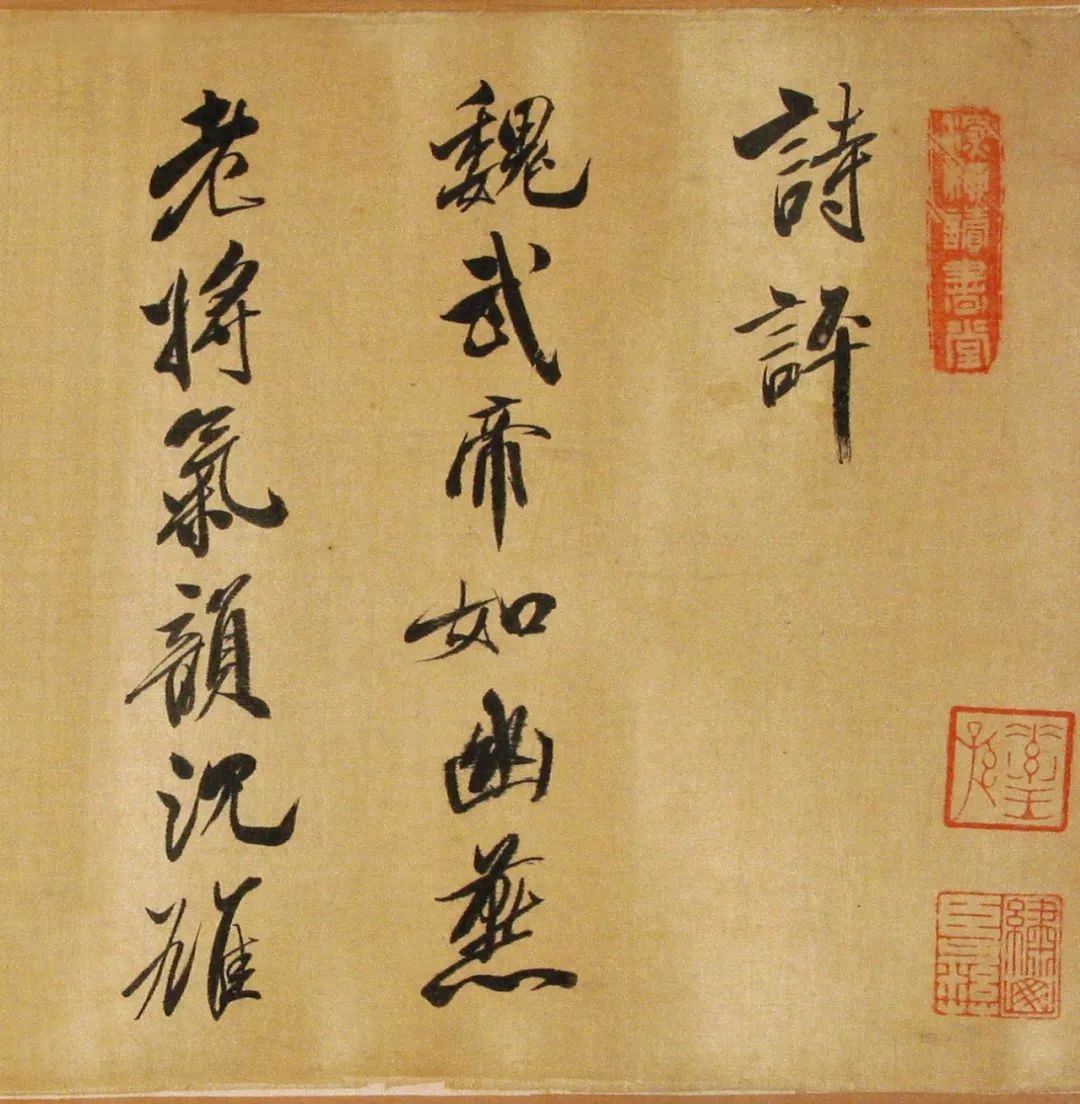 詩評
魏武帝如幽燕
老將氣韻沉雄
讀書堂